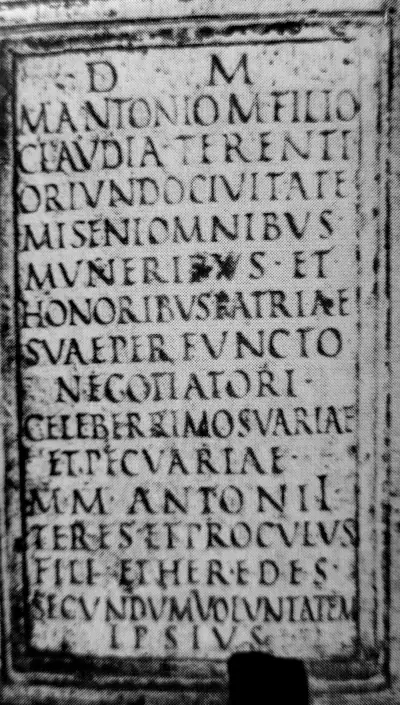 D M
M ANTONIO M FILIO
CLAVDIA · TERENTI
ORIVNDO CIVITATE
MISENI OMNIBVS
MVNERIBVS · ET
HONORIBVS PATRIAE
SVAE PERFVNCTO
NEGOTIATORI ·
CELEBERRIMO SVARIAE
ET · PECVARIAE
M M · ANTONII
TERES · ET PROCVLVS
FILI · ET HEREDES ·
SECVNDVM VOLVNTATEM
IPSIVS